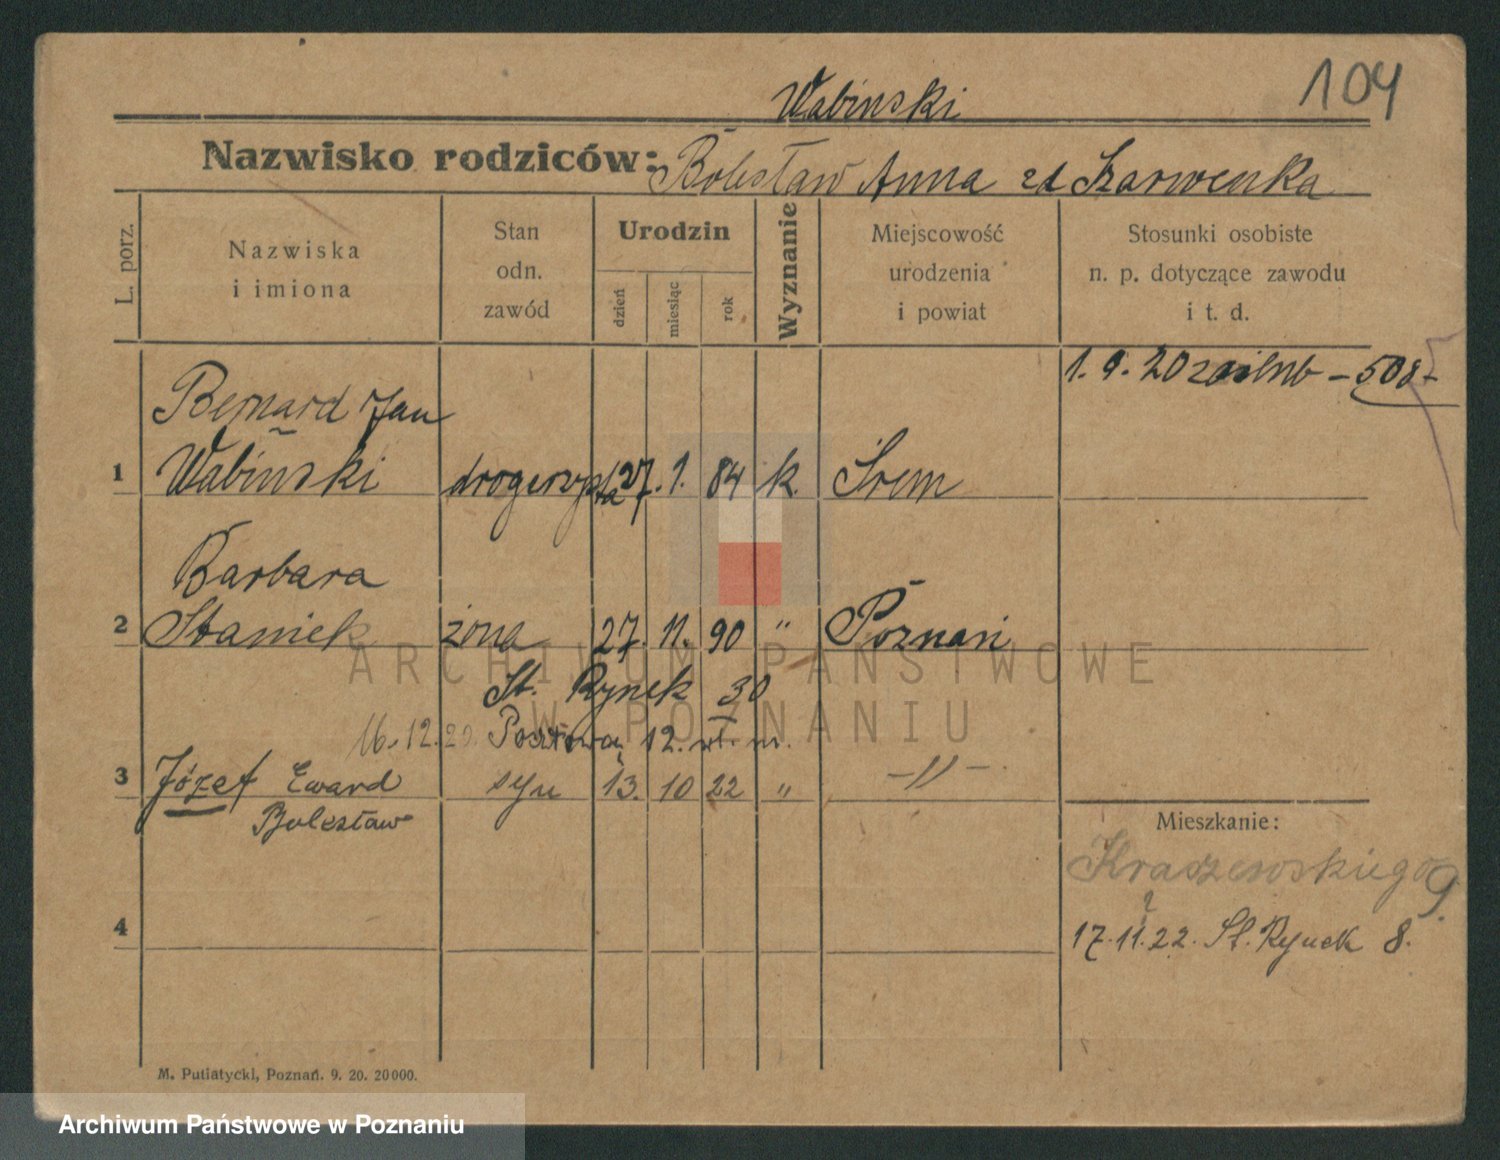 104
Wabinski
Nazwisko rodziców: Bolesław Anna zd Szarwenka
L. porz.
Nazwiska i imiona
Stan odn. zawód
Urodzin
dzień
miesiąc
rok
Wyznanie
Miejscowość urodzenia i powiat
Stosunki osobiste n. p. dotyczące zawodu i t. d.
1. 9. 20 – 508 –
Bernard Jan
1 Wabiński drogerzysta 27. 1. 84 k. Śrem
Barbara
2 Staniek żona 27. 11. 90 " Poznań
St. Rynek 30
16.12.20. Pocztowa 12.
3 Józef Edward syn 13. 10 22 " – " –
Bolesław
Mieszkanie:
Kraszewskiego 9.
17.11.22. St. Rynek 8.
4
M. Putiatycki, Poznań. 9. 20. 20000.
ARCHIWUM PAŃSTWOWE
W POZNANIU
Archiwum Państwowe w Poznaniu